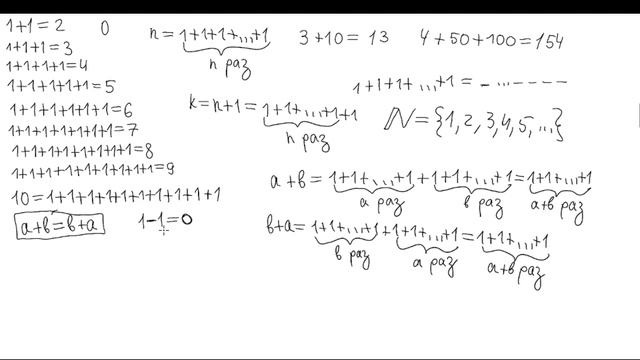 1+1=2
0
1+1+1=3
1+1+1+1=4
1+1+1+1+1=5
1+1+1+1+1+1=6
1+1+1+1+1+1+1=7
1+1+1+1+1+1+1+1=8
1+1+1+1+1+1+1+1+1=9
10=1+1+1+1+1+1+1+1+1+1
a+b=b+a
1-1=0
n=1+1+1+...+1
n раз
3+10=13
4+50+100=154
1+1+1+...+1=-...----
k=n+1=1+1+...+1+1
n раз
ℕ={1,2,3,4,5,...}
a+b=1+1+...+1+1+1+...+1=1+1+...+1
a раз b раз a+b раз
b+a=1+1+...+1+1+1+...+1=1+1+...+1
b раз a раз a+b раз